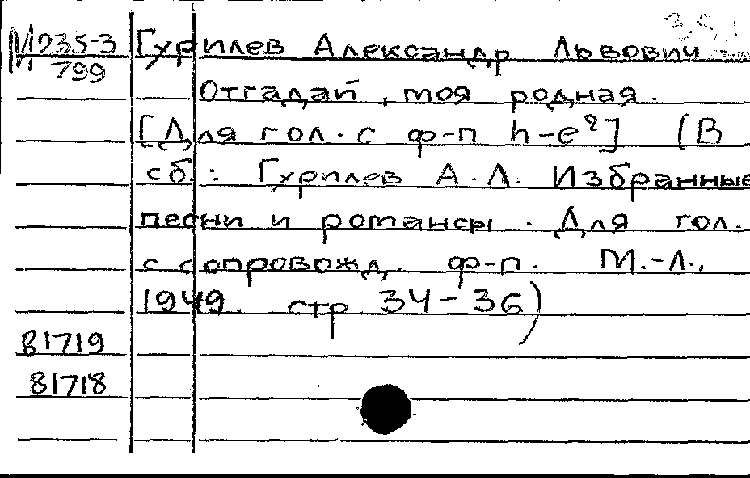 М235-3 Гурилев Александр Львович
799
Отгадай, моя родная.
[Для гол. с ф-п h-e²] (В
сб.: Гурилев А.Л. Избранные
песни и романсы. Для гол.
с сопровожд. ф-п. М.-Л.,
1949. стр. 34-36)
81719
81718